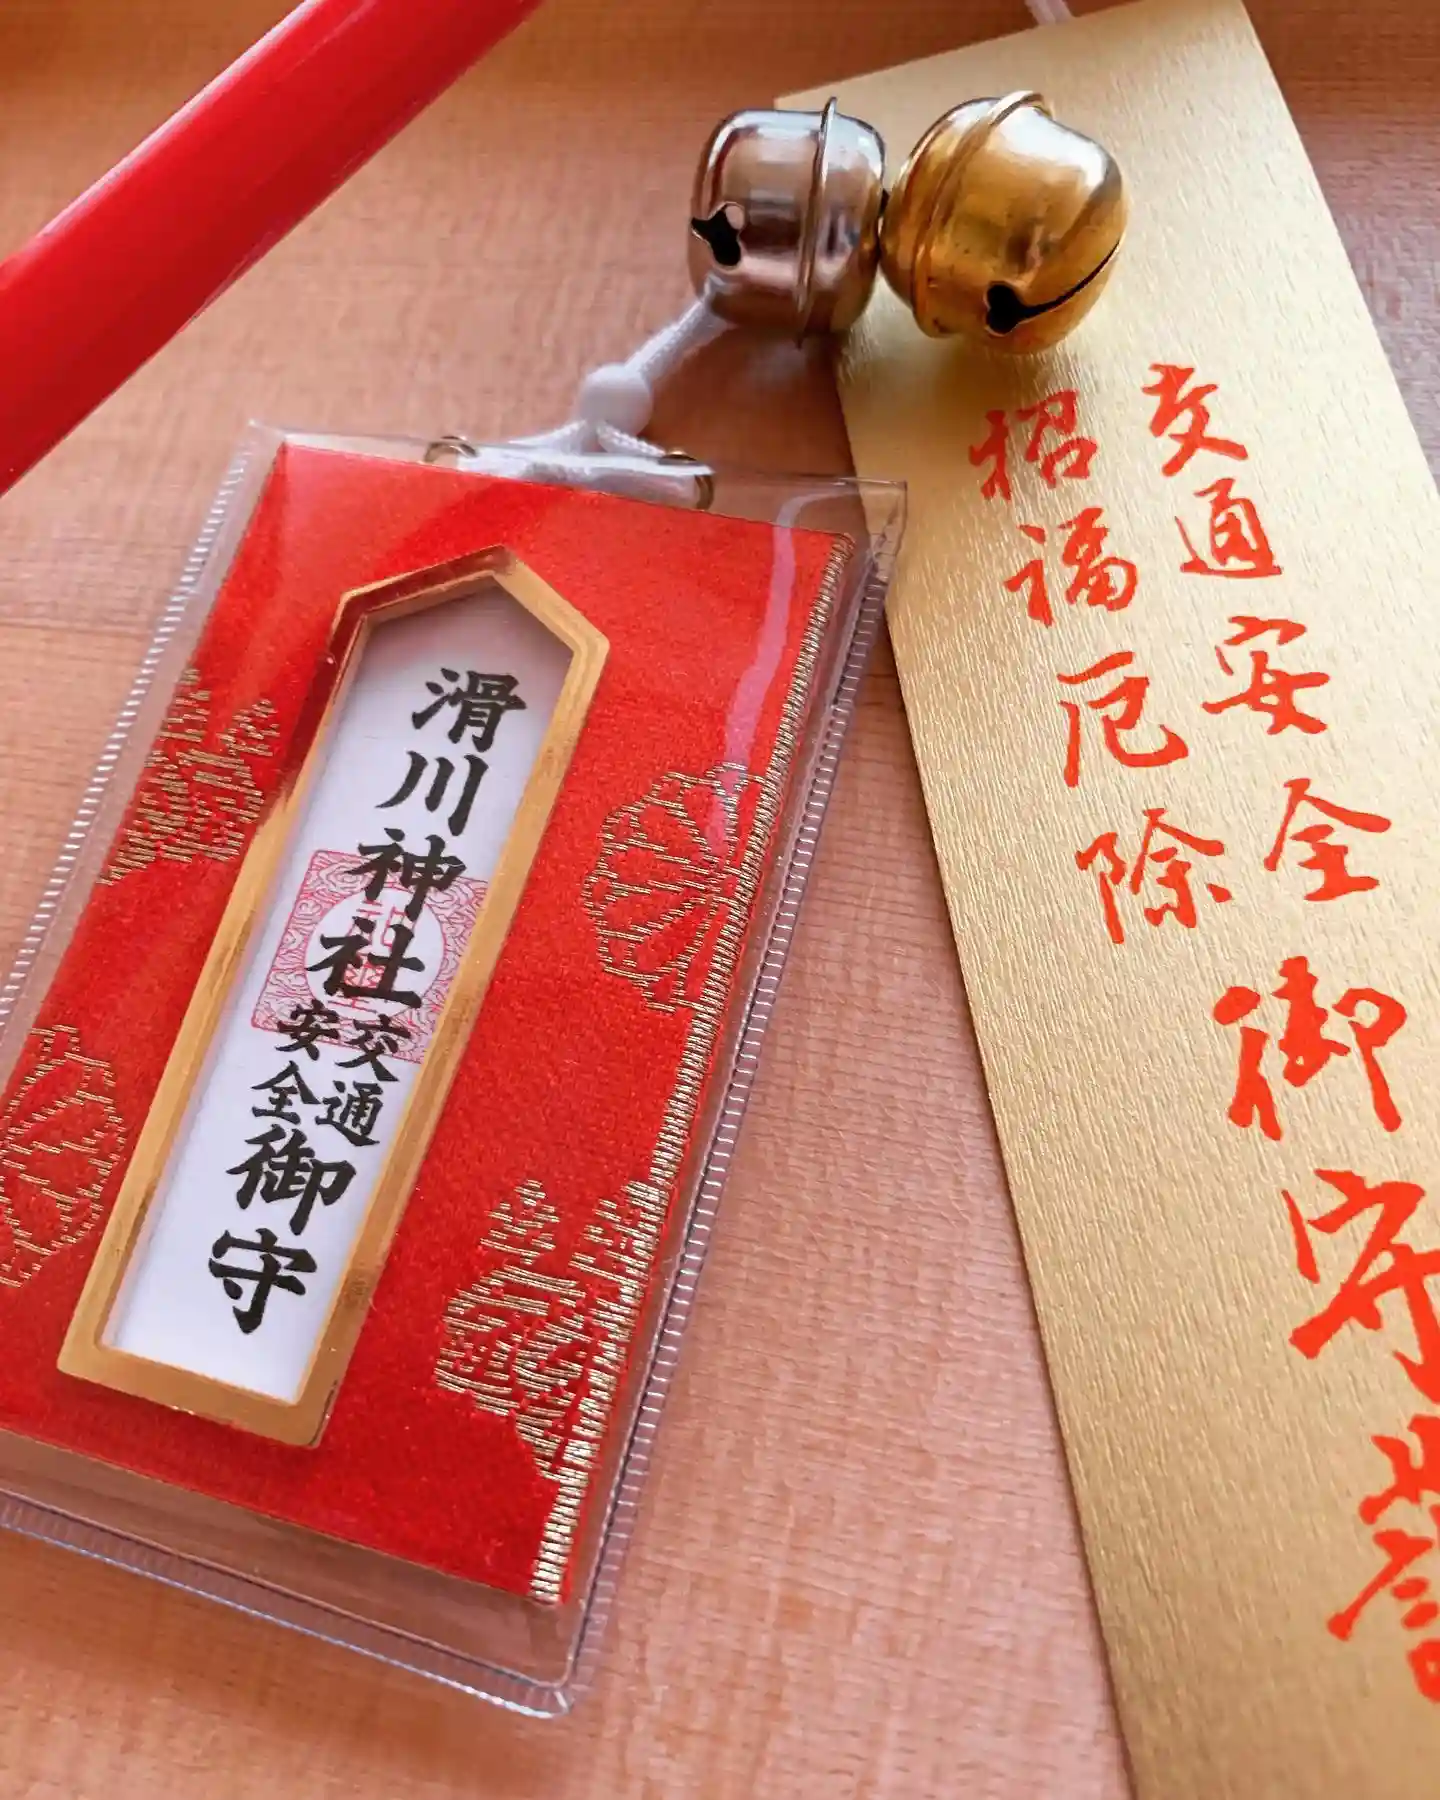 滑川神社
交通
安全
御守
交通安全御守護
招福厄除